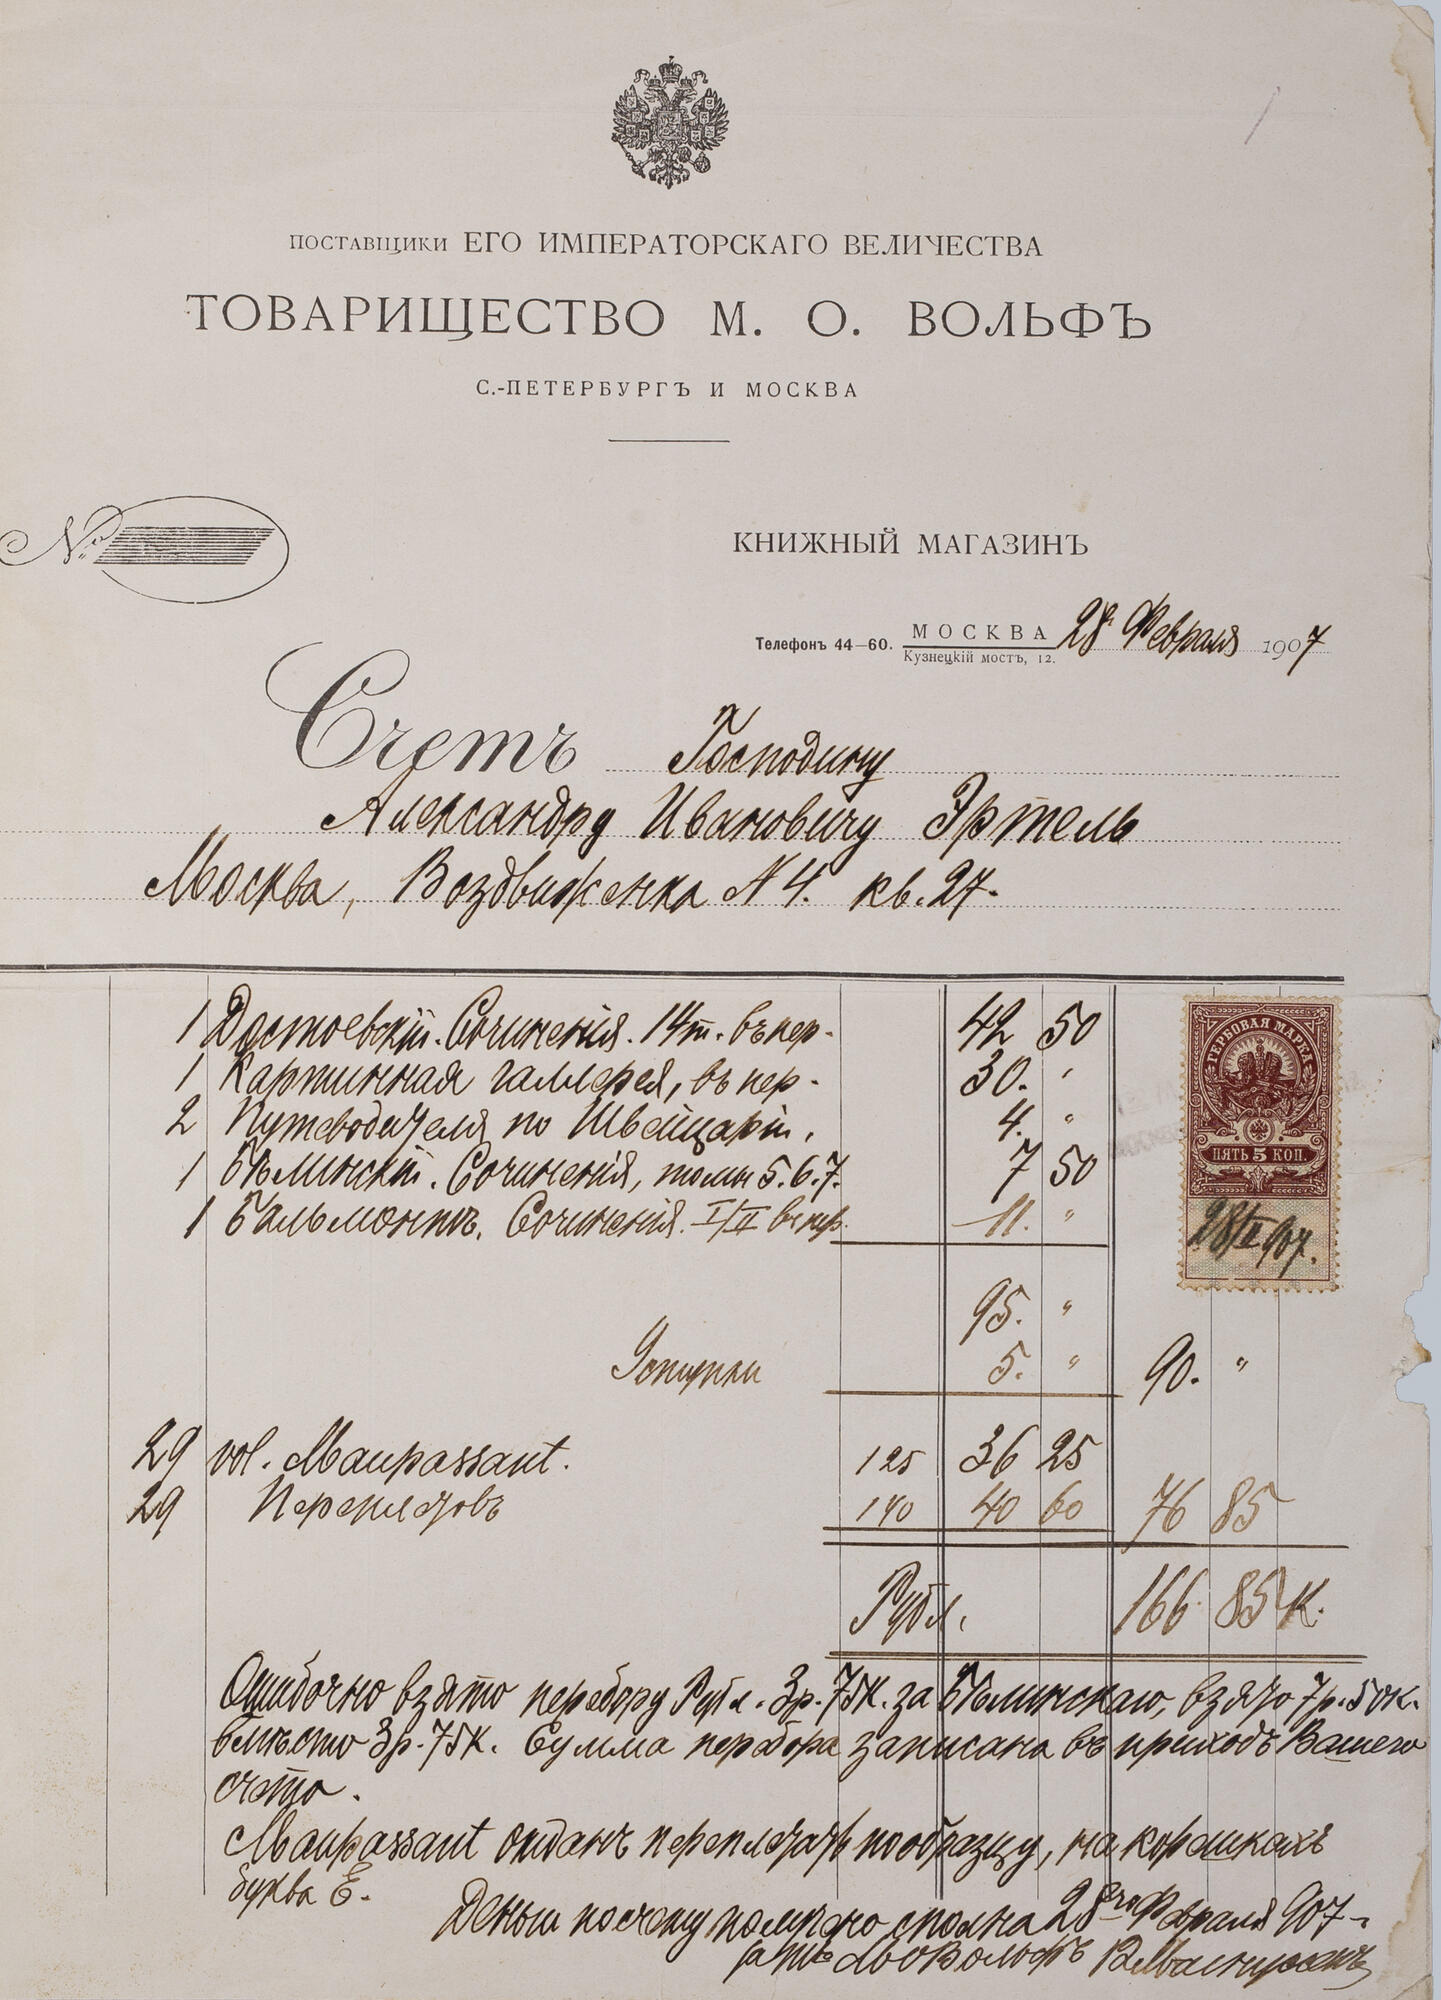 ПОСТАВЩИКИ ЕГО ИМПЕРАТОРСКАГО ВЕЛИЧЕСТВА
ТОВАРИЩЕСТВО М. О. ВОЛЬФЪ
С.-ПЕТЕРБУРГЪ И МОСКВА
№
КНИЖНЫЙ МАГАЗИНЪ
Телефонъ 44—60. МОСКВА 28 Февраля 1907
Кузнецкій мостъ, 12.
Счетъ Господину
Александру Ивановичу Эртель
Москва, Воздвиженка N 4. кв. 27.
1 Достоевскій. Сочиненія. 14 т. въ пер. 42 50
1 Картинная галлерея, въ пер. 30. "
2 Путеводителя по Швейцаріи. 4. "
1 Бѣлинскій. Сочиненія, томы 5. 6. 7. 7 50
1 Бальмонтъ. Сочиненія. I/II въ пер. 11. "
95. "
Уступки 5. " 90. "
29 vol. Maupassant. 125 36 25
29 Переплетовъ 140 40 60 76 85
Рубл. 166 85 К.
Ошибочно взято перебору Рубл. 3 р. 75 К. за Бѣлинскаго, взято 7 р. 50 к.
вмѣсто 3 р. 75 К. Сумма перебора записана въ приходъ Вашего
счета.
Maupassant отданъ переплетать по образцу, на корешкахъ
буква Е.
Деньги по счету получено сполна 28го Февраля 907
МО Вольфъ
ГЕРБОВАЯ МАРКА
ПЯТЬ 5 КОП.
28/II 907.